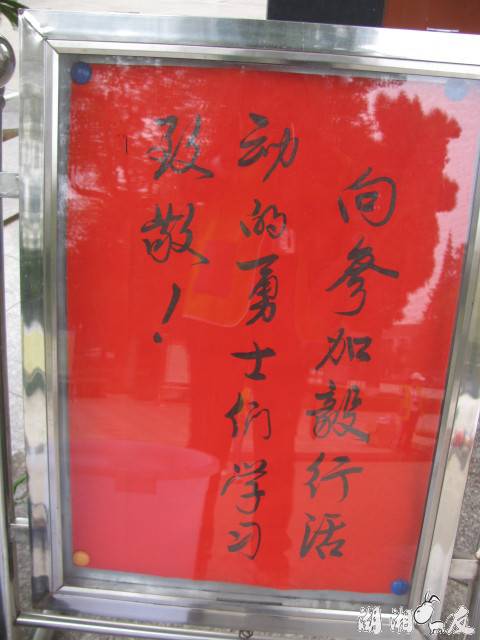 向参加毅行活
动的勇士们学习
致敬！
湖湘 友